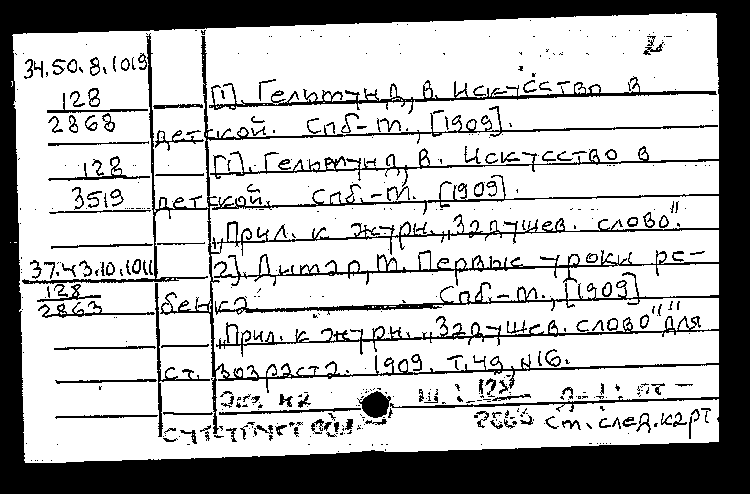 34.50.8.1019
128 [1]. Гельмунд, В. Искусство в
2868 детской. Спб.-М., [1909].
128 [1]. Гельмунд, В. Искусство в
3519 детской. Спб.-М., [1909].
„Прил. к журн. „Задушев. слово".
37.43.10.1011 2]. Дитар, М. Первые уроки ре-
128 бенка Спб.-М., [1909]
2863 „Прил. к журн. „Задушев. слово"" для
ст. возраста. 1909. Т. 49, N16.
Экз. на Ш.: 128
2863 см. след. карт.